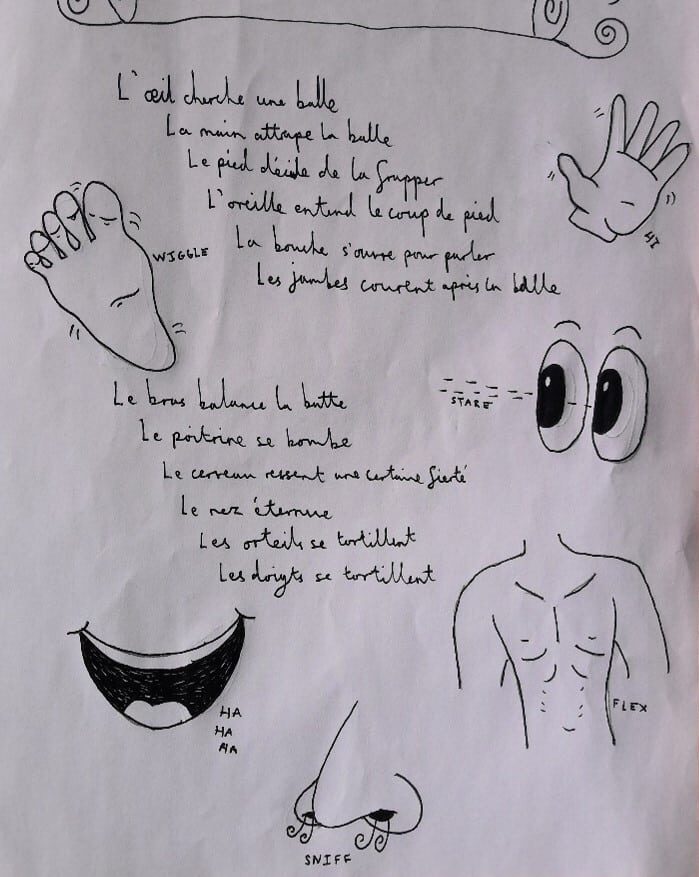 L'œil cherche une balle
La main attrape la balle
Le pied décide de la frapper
L'oreille entend le coup de pied
La bouche s'ouvre pour parler
Les jambes courent après la balle
HI
WIGGLE
STARE
Le bras balance la batte
Le poitrine se bombe
Le cerveau ressent une certaine fierté
Le nez éternue
Les orteils se tortillent
Les doigts se tortillent
FLEX
HA
HA
HA
SNIFF